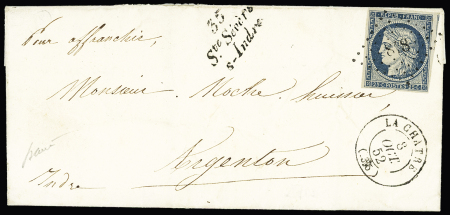 Pour affranchir,
35
Ste Sévère
s-Indre.
REPUB. FRANC.
25 C. POSTES 25 C.
Monsieur Moche huissier,
Argenton
Indre
LA CHATRE
8
OCT.
52
(35)